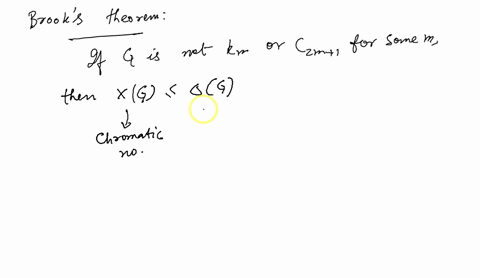 Brook's theorem:
If G is not Km or C2m+1, for some m,
then χ(G) ≤ Δ(G)
Chromatic
no.